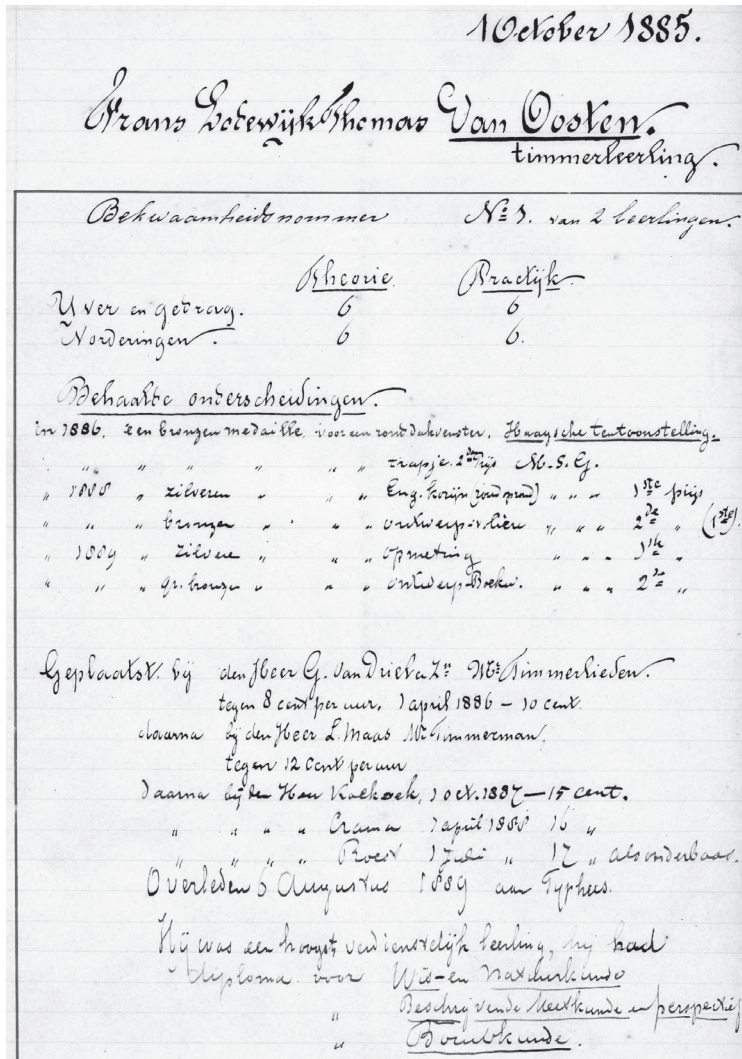 1 October 1885.
Frans Lodewijk Thomas Van Oosten.
timmerleerling.
Bekwaamheidsnommer No 1. van 2 leerlingen.
Theorie. Practijk.
Yver en gedrag. 6 6
Vorderingen. 6 6.
Behaalde onderscheidingen.
in 1886. een bronzen medaille, voor een rond dakvenster. Haagsche tentoonstelling.
" " " " " " trapje. 2den prijs M.S.G.
" 1888 " zilveren " " " Eng. kozijn " " " 1ste prijs
" " " bronzen " " " ontwerp " " " 2de " (1ste).
" 1889 " zilvere " " " opmeting " " " 1ste "
" " " gr. bronzen " " " ontwerp " " " 2de "
Geplaatst. bij den Heer G. van Driel & Zn Mr Timmerlieden.
tegen 8 cent per uur. 1 april 1886 – 10 cent.
daarna bij den Heer L. Maas Mr Timmerman,
tegen 12 cent per uur
daarna bij den Heer Koekoek, 1 oct. 1887 – 15 cent.
" " " " Crama 1 april 1888 16 "
" " " " Roest 1 Juli " 17 " als onderbaas.
Overleden 6 Augustus 1889 aan Typheus.
Hij was een hoogst verdienstelijk leerling, hij had
diploma voor Wis- en Natuurkunde
" Beschrijvende Meetkunde en perspectief
" Bouwkunde.